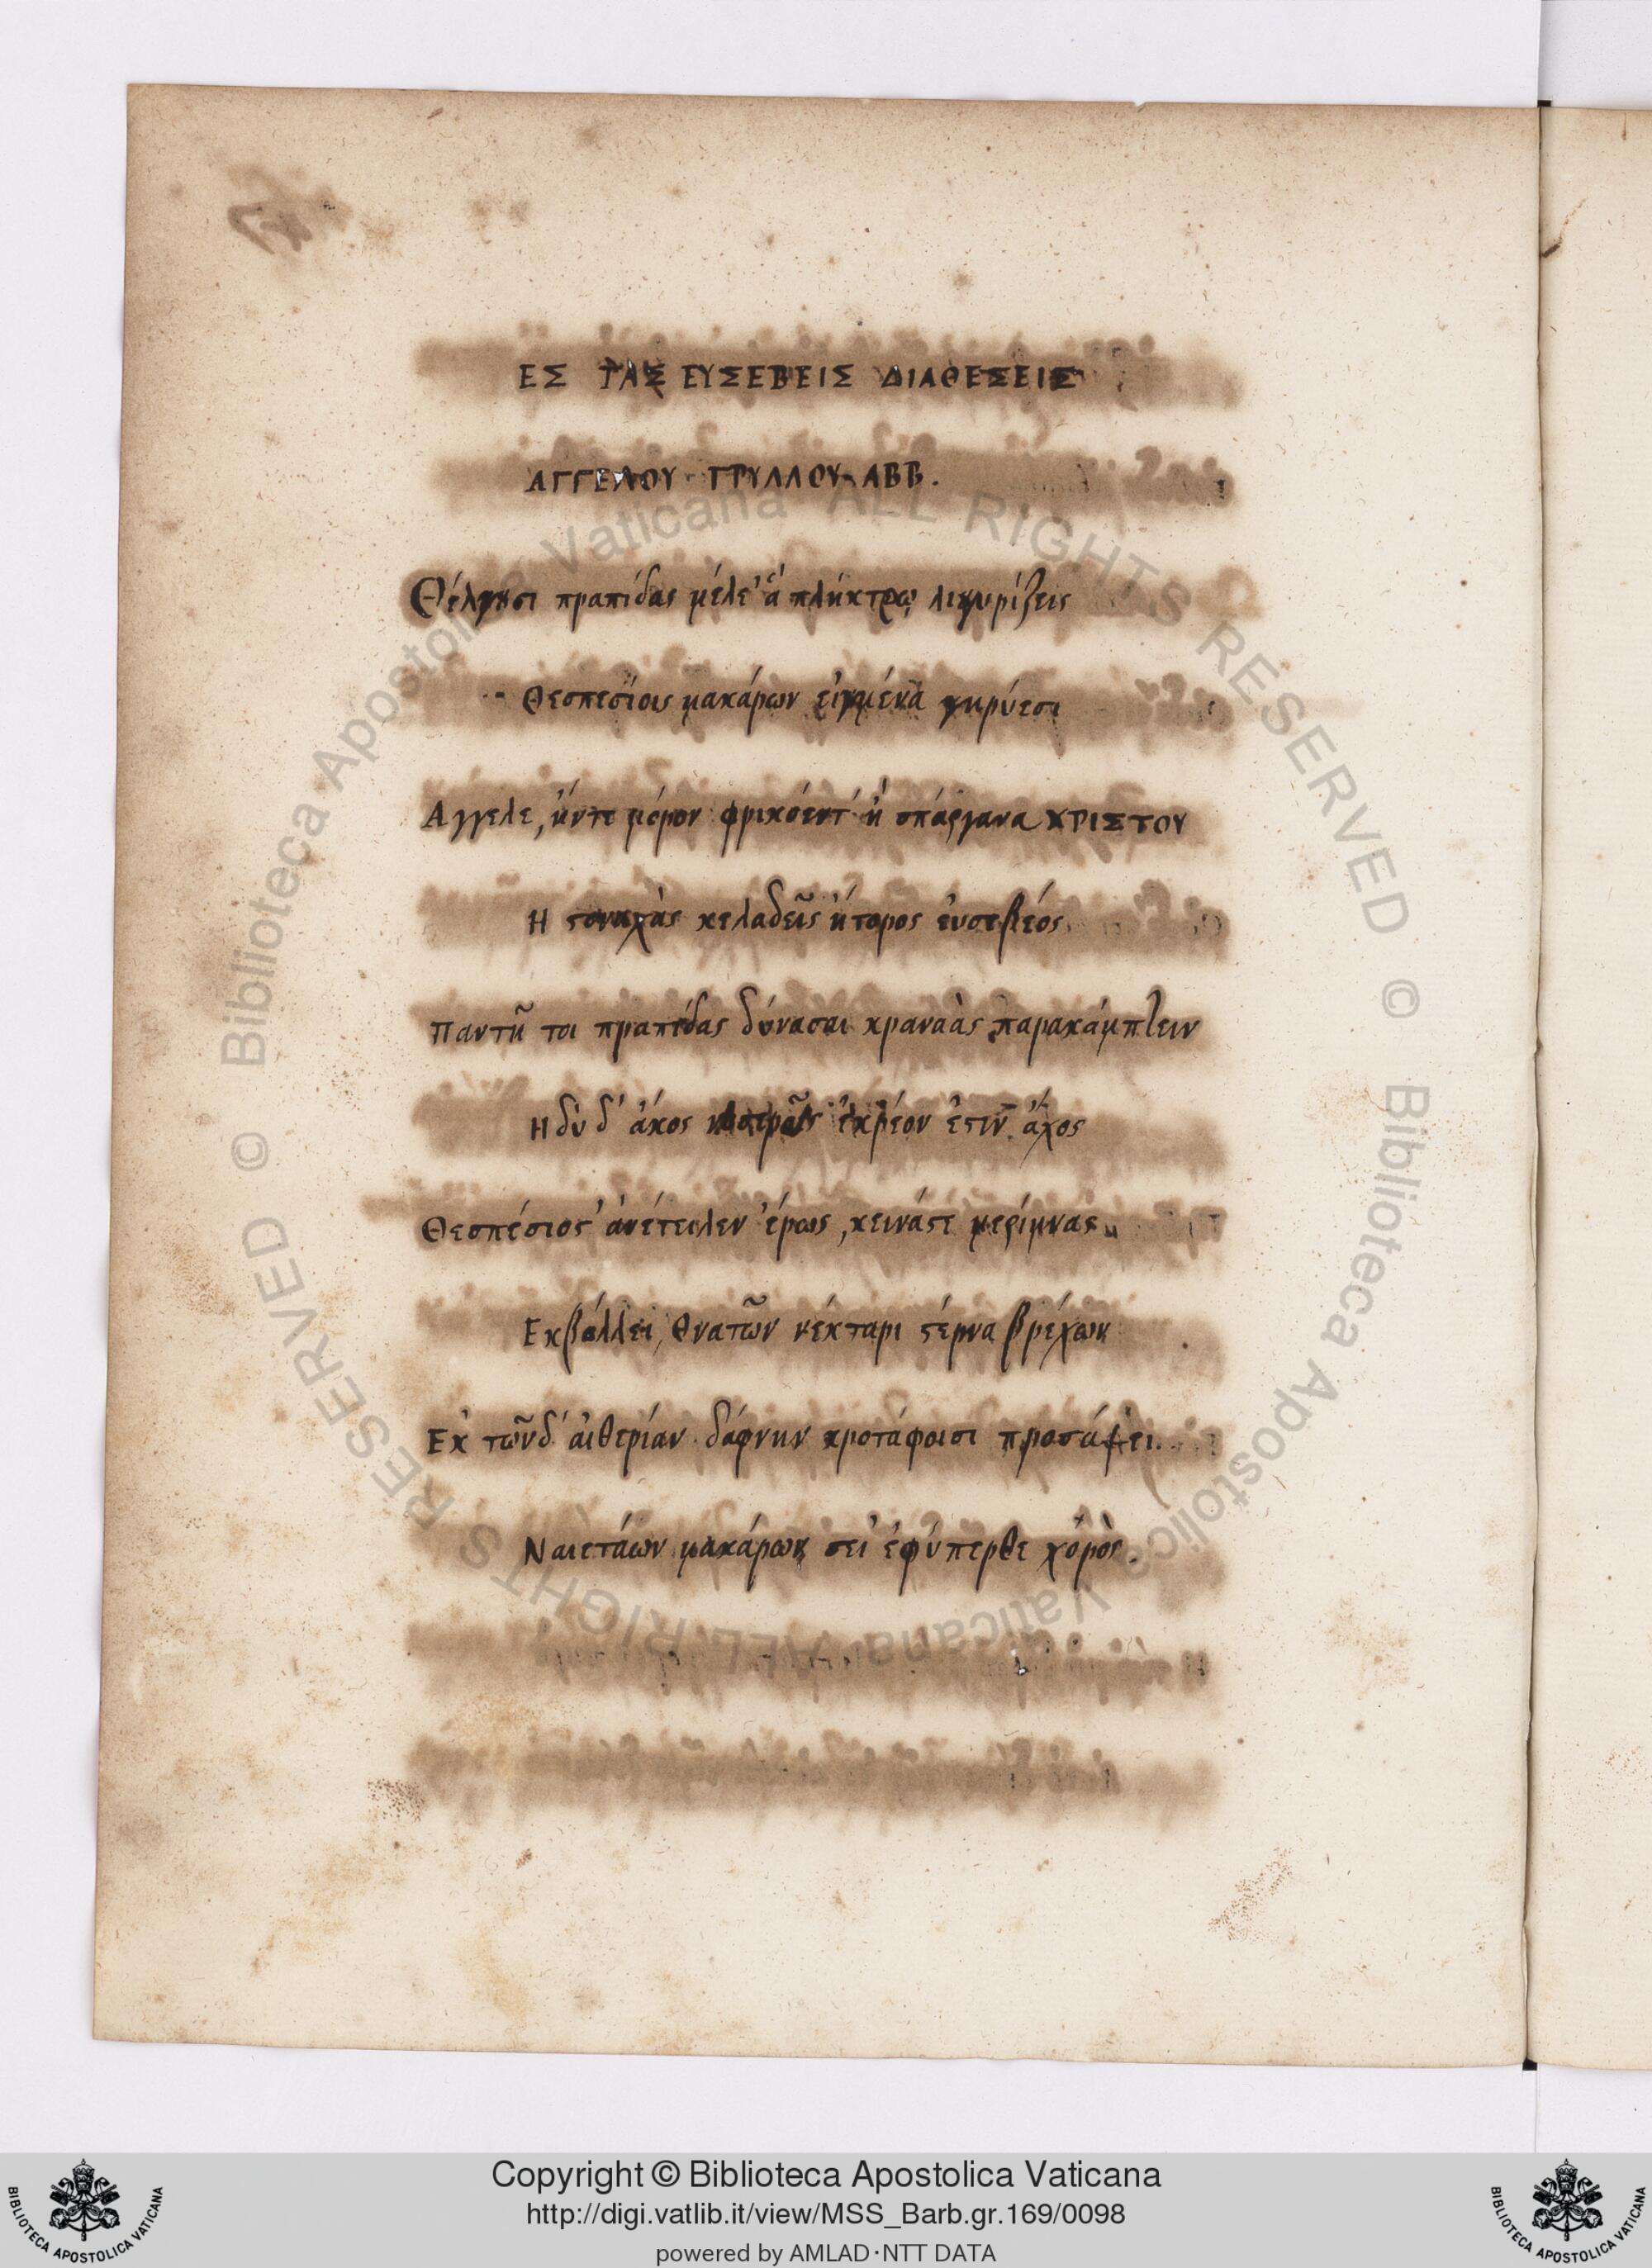 ΕΣ ΤΑΣ ΕΥΣΕΒΕΙΣ ΔΙΑΘΕΣΕΙΣ
ΑΓΓΕΛΟΥ ΓΡΥΛΛΟΥ ΑΒΒ.
Θέλγουσι πραπίδας μέλε' ἃ πλήκτρῳ λιγυρίζεις
Θεσπεσίοις μακάρων εἰγμένα γηρύεσι
Αγγελε, ἤντε μόρον φρικόεντ' ἢ σπάργανα ΧΡΙΣΤΟΥ
Η στοναχὰς κελαδεῖς ἤτορος ἐυσεβέος
Παντῆ τοι πραπίδας δύνασαι κραναὰς παρακάμπτειν
Ηδὺ δ' ἄκος ἐκρέον ἐστιν ἄχος
Θεσπέσιος ἀνέτειλεν ἔρως, κεινάστε μερίμνας
Εκβάλλει, θνατῶν νέκταρι στέρνα βρέχων
Εκ τῶνδ' αἰθερίαν δάφνην κροτάφοισι προσάψει
Ναιετάων μακάρων σει ἐφύπερθε χορὸς.
© Biblioteca Apostolica Vaticana ALL RIGHTS RESERVED © Biblioteca Apostolica Vaticana ALL RIGHTS RESERVED
BIBLIOTECA APOSTOLICA VATICANA
Copyright © Biblioteca Apostolica Vaticana
http://digi.vatlib.it/view/MSS_Barb.gr.169/0098
powered by AMLAD·NTT DATA
BIBLIOTECA APOSTOLICA VATICANA